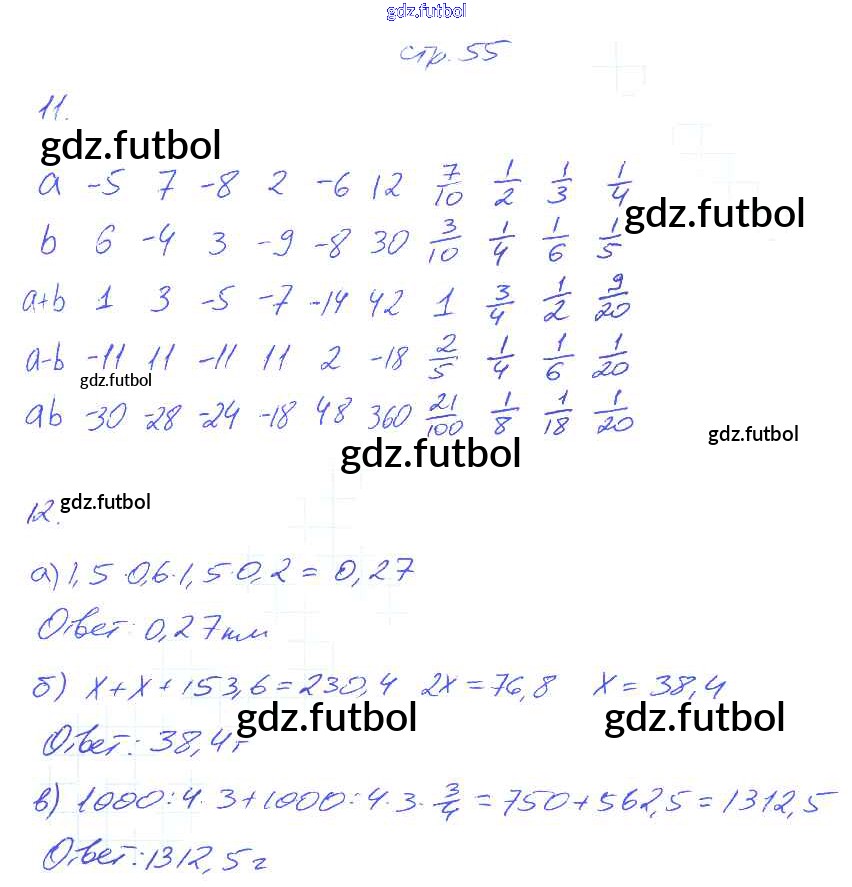 gdz.futbol
стр. 55
11.
gdz.futbol
a -5 7 -8 2 -6 12 7/10 1/2 1/3 1/4
gdz.futbol
b 6 -4 3 -9 -8 30 3/10 1/4 1/6 1/5
a+b 1 3 -5 -7 -14 42 1 3/4 1/2 9/20
a-b -11 11 -11 11 2 -18 2/5 1/4 1/6 1/20
gdz.futbol
ab -30 -28 -24 -18 48 360 21/100 1/8 1/18 1/20
gdz.futbol
gdz.futbol
12.
gdz.futbol
а) 1,5·0,6·1,5·0,2 = 0,27
Ответ: 0,27 км
б) x+x+153,6=230,4 2x=76,8 x=38,4
gdz.futbol gdz.futbol
Ответ: 38,4 т
в) 1000:4·3+1000:4·3·3/4=750+562,5=1312,5
Ответ: 1312,5 г